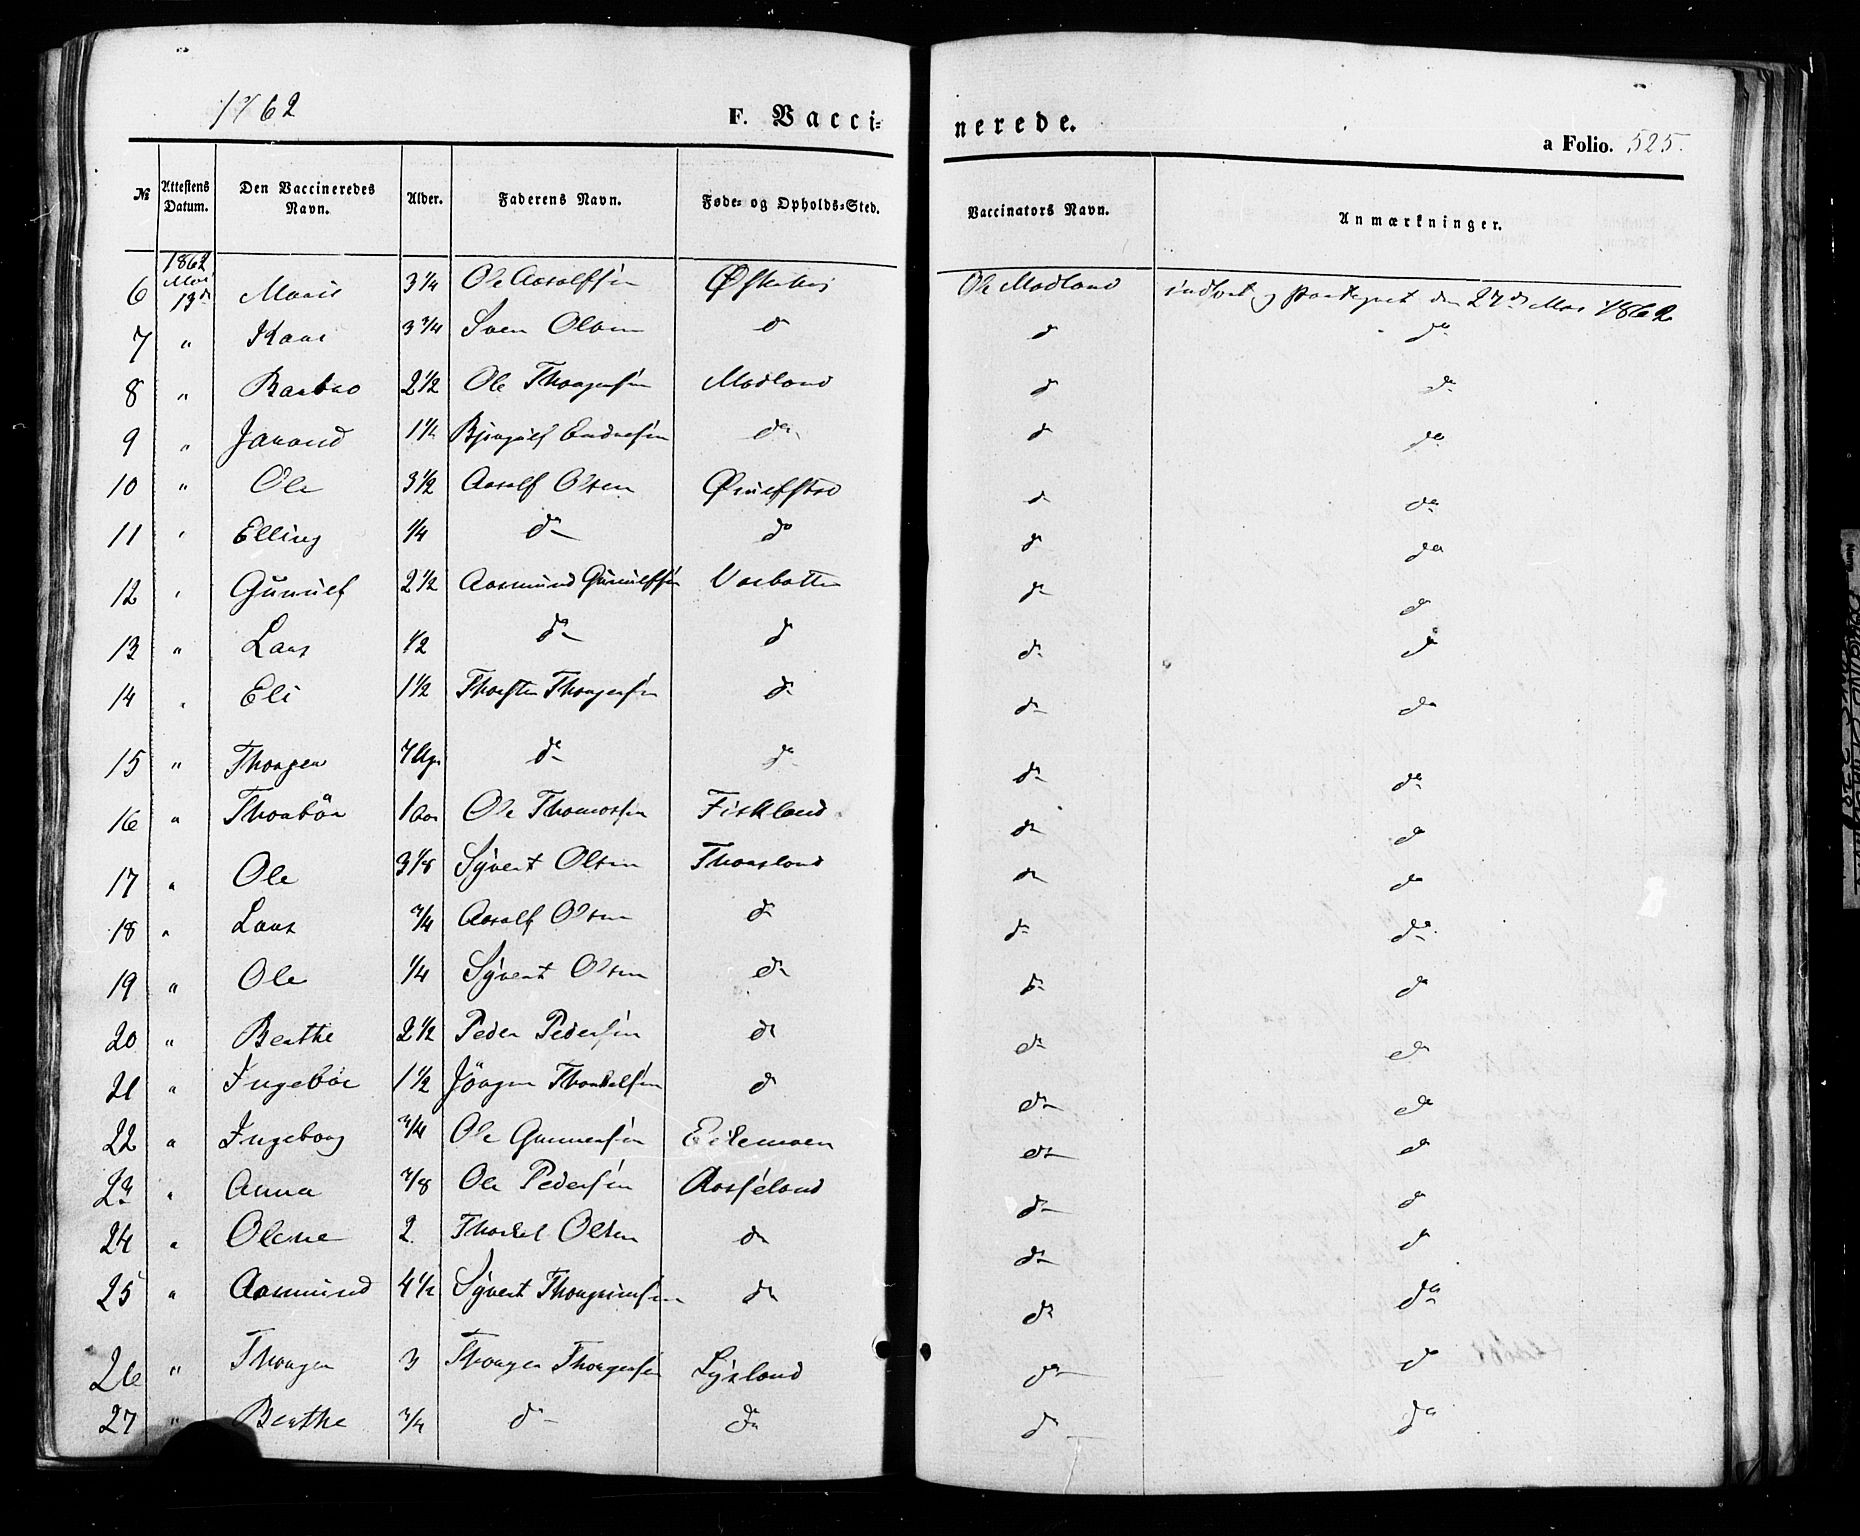 1862
F. Vacci-
nerede.
a Folio. 525.
№ Attestens Datum. Den Vaccineredes Navn. Alder. Faderens Navn. Føde- og Opholds-Sted. Vaccinators Navn. Anmærkninger.
1862
6 Mai 13de Maris 3 1/4 Ole Aasolfsen Ole Modland indført og paategnet den 27de Mai 1862
7 " 3 3/4 Sven Olsen do do do
8 " Barbro 2 1/2 Ole Thorgersen Modland do do
9 " Jorand 1 1/4 Bjørgulf Endresen do do do
10 " Ole 3 1/2 Aasolf Olsen do do
11 " Elling 1/4 do do do do
12 " Gunulf 2 1/2 Aasmund Gunulfsen Vasbotten do do
13 " Lars 1/2 do do do do
14 " Eli 1 1/2 Thorsten Thorgersen do do do
15 " Thorger 7 Ug. do do do do
16 " Thorbör 1 aar Ole Thomassen Fiskland do do
17 " Ole 3 1/8 Syvert Olsen Thorsland do do
18 " Lars 3/4 Aasolf Olsen do do do
19 " Ole 1/4 Syvert Olsen do do do
20 " Berthe 2 1/2 Peder Pedersen do do do
21 " Ingebör 1 1/2 Jörgen Thorkelsen do do do
22 " Ingeborg 3/4 Ole Gunnersen Eilemoen do do
23 " Anna 7/8 Ole Pedersen Aasseland do do
24 " Olene 2 Thorkel Olsen do do do
25 " Aasmund 4 1/2 Syvert Thorgrimsen do do do
26 " Thorger 3 Thorger Thorgersen Lysland do do
27 " Berthe 3/4 do do do do